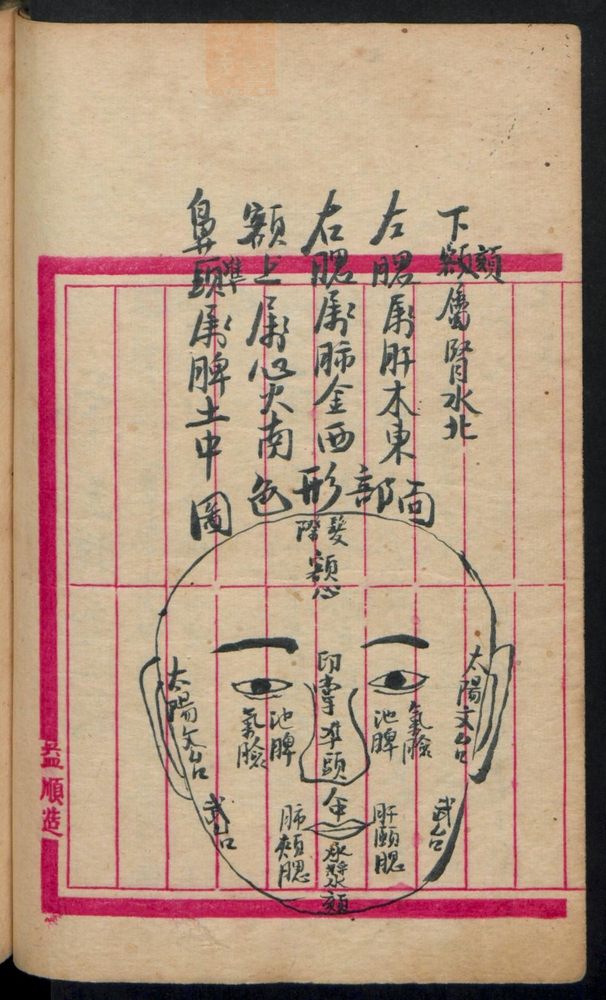 下頦屬腎水北
左腮属肝木東
右腮属肺金西
額上属心火南
鼻準頭属脾土中
面部形色圖
髮際
額心
印堂
准頭
人中
承漿
頦
太陽文台
武台
氣臉
池脾
肝頤腮
池脾
氣臉
肺頰腮
太陽文台
武台
益順造